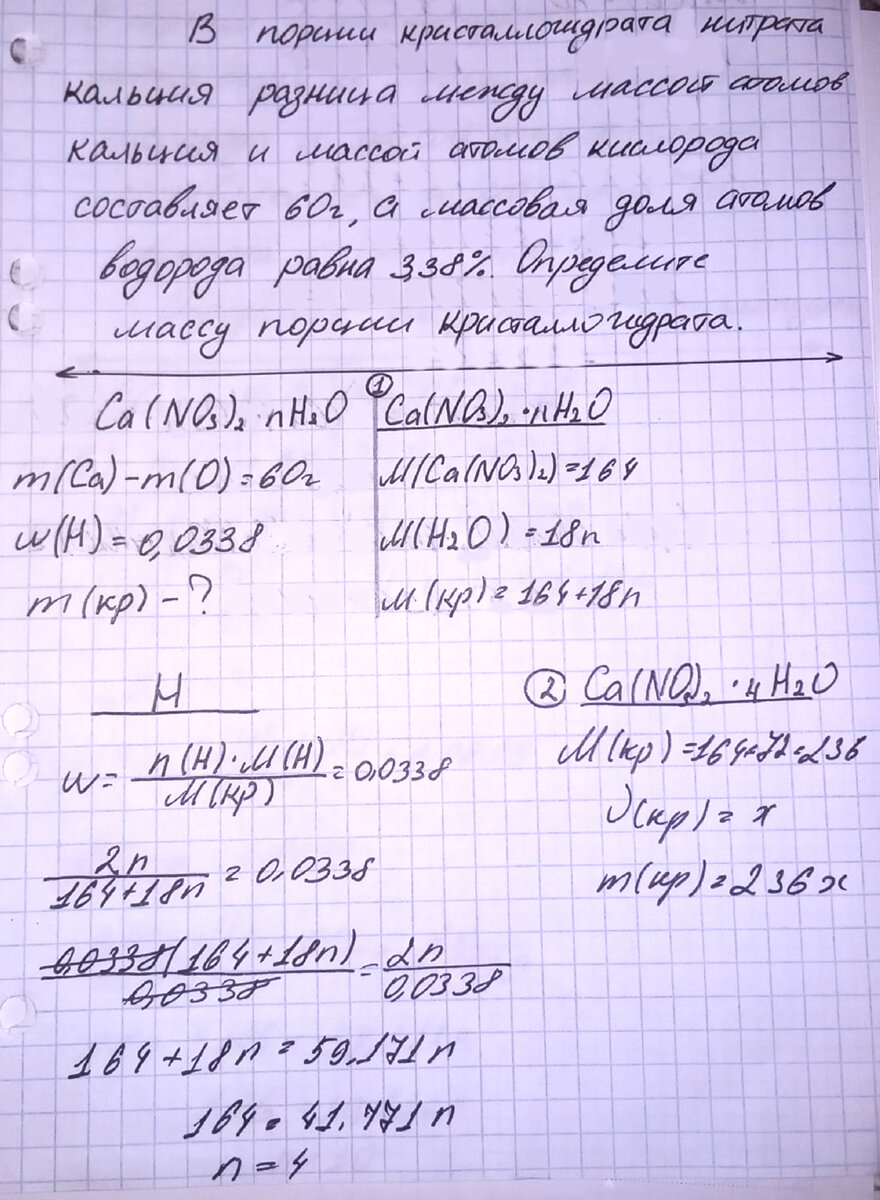 В порции кристаллогидрата нитрата
кальция разница между массой атомов
кальция и массой атомов кислорода
составляет 60г, а массовая доля атомов
водорода равна 3,38%. Определите
массу порции кристаллогидрата.
Ca(NO₃)₂ · nH₂O
m(Ca) - m(O) = 60г
w(H) = 0,0338
m(кр) - ?
① Ca(NO₃)₂ · nH₂O
M(Ca(NO₃)₂) = 164
M(H₂O) = 18n
M(кр) = 164+18n
H
w = n(H)·M(H) / M(кр) = 0,0338
2n / 164+18n = 0,0338
0,0338(164+18n) / 0,0338 = 2n / 0,0338
164+18n = 59,171n
164 = 41,171n
n = 4
② Ca(NO₃)₂ · 4H₂O
M(кр) = 164+72=236
ν(кр) = x
m(кр) = 236x